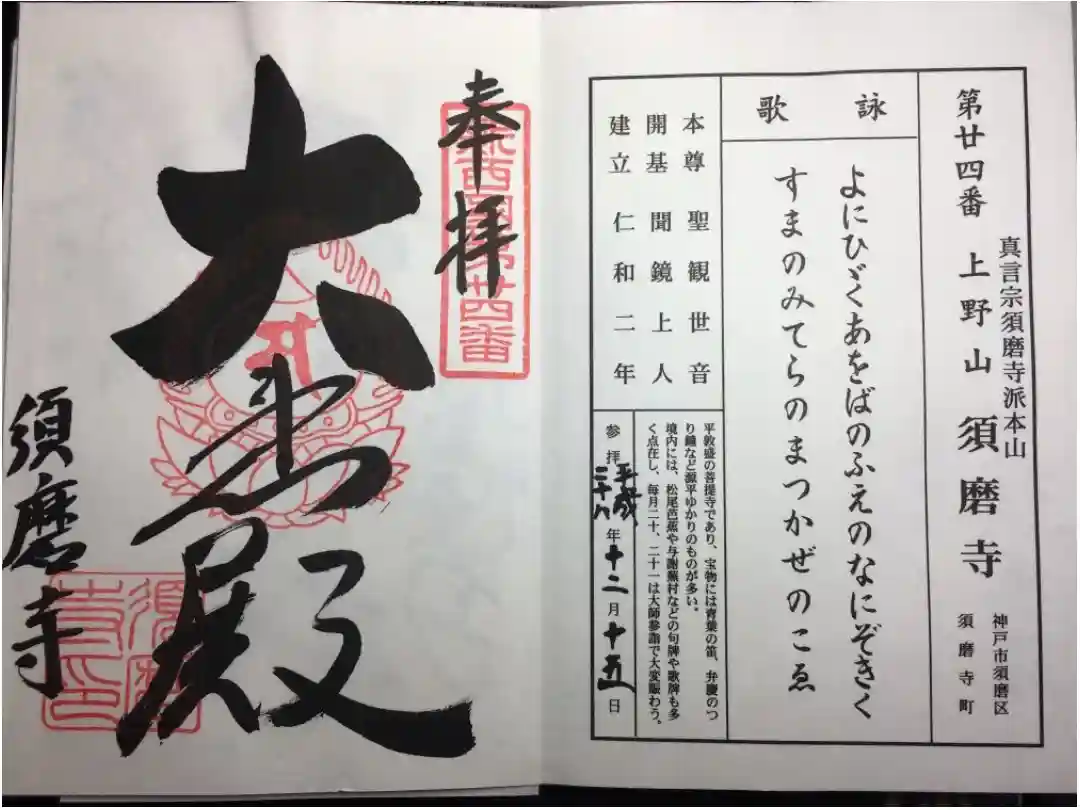 真言宗須磨寺派本山
第廿四番 上野山 須磨寺
神戸市須磨区
須磨寺町
詠歌
よにひゞくあをばのふえのなにぞきく
すまのみてらのまつかぜのこゑ
本尊 聖観世音
開基 聞鏡上人
建立 仁和二年
平敦盛の菩提寺であり、宝物には青葉の笛、弁慶のつ
り鐘など源平ゆかりのものが多い。
境内には、松尾芭蕉や与謝蕪村などの句碑や歌碑も多
く点在し、毎月二十、二十一は大師参詣で大変賑わう。
参拝 平成二十八年十二月十五日
奉拝
新西国第廿四番
大悲殿
須磨寺
須磨寺印